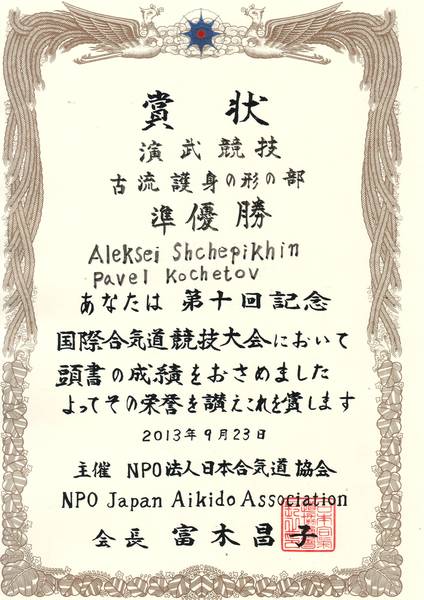 賞状
演武競技
古流護身の形の部
準優勝
Aleksei Shchepikhin
Pavel Kochetov
あなたは 第十回記念
国際合気道競技大会において
頭書の成績をおさめました
よってその栄誉を讃えこれを賞します
2013年9月23日
主催 NPO法人日本合気道協会
NPO Japan Aikido Association
会長 富木昌子